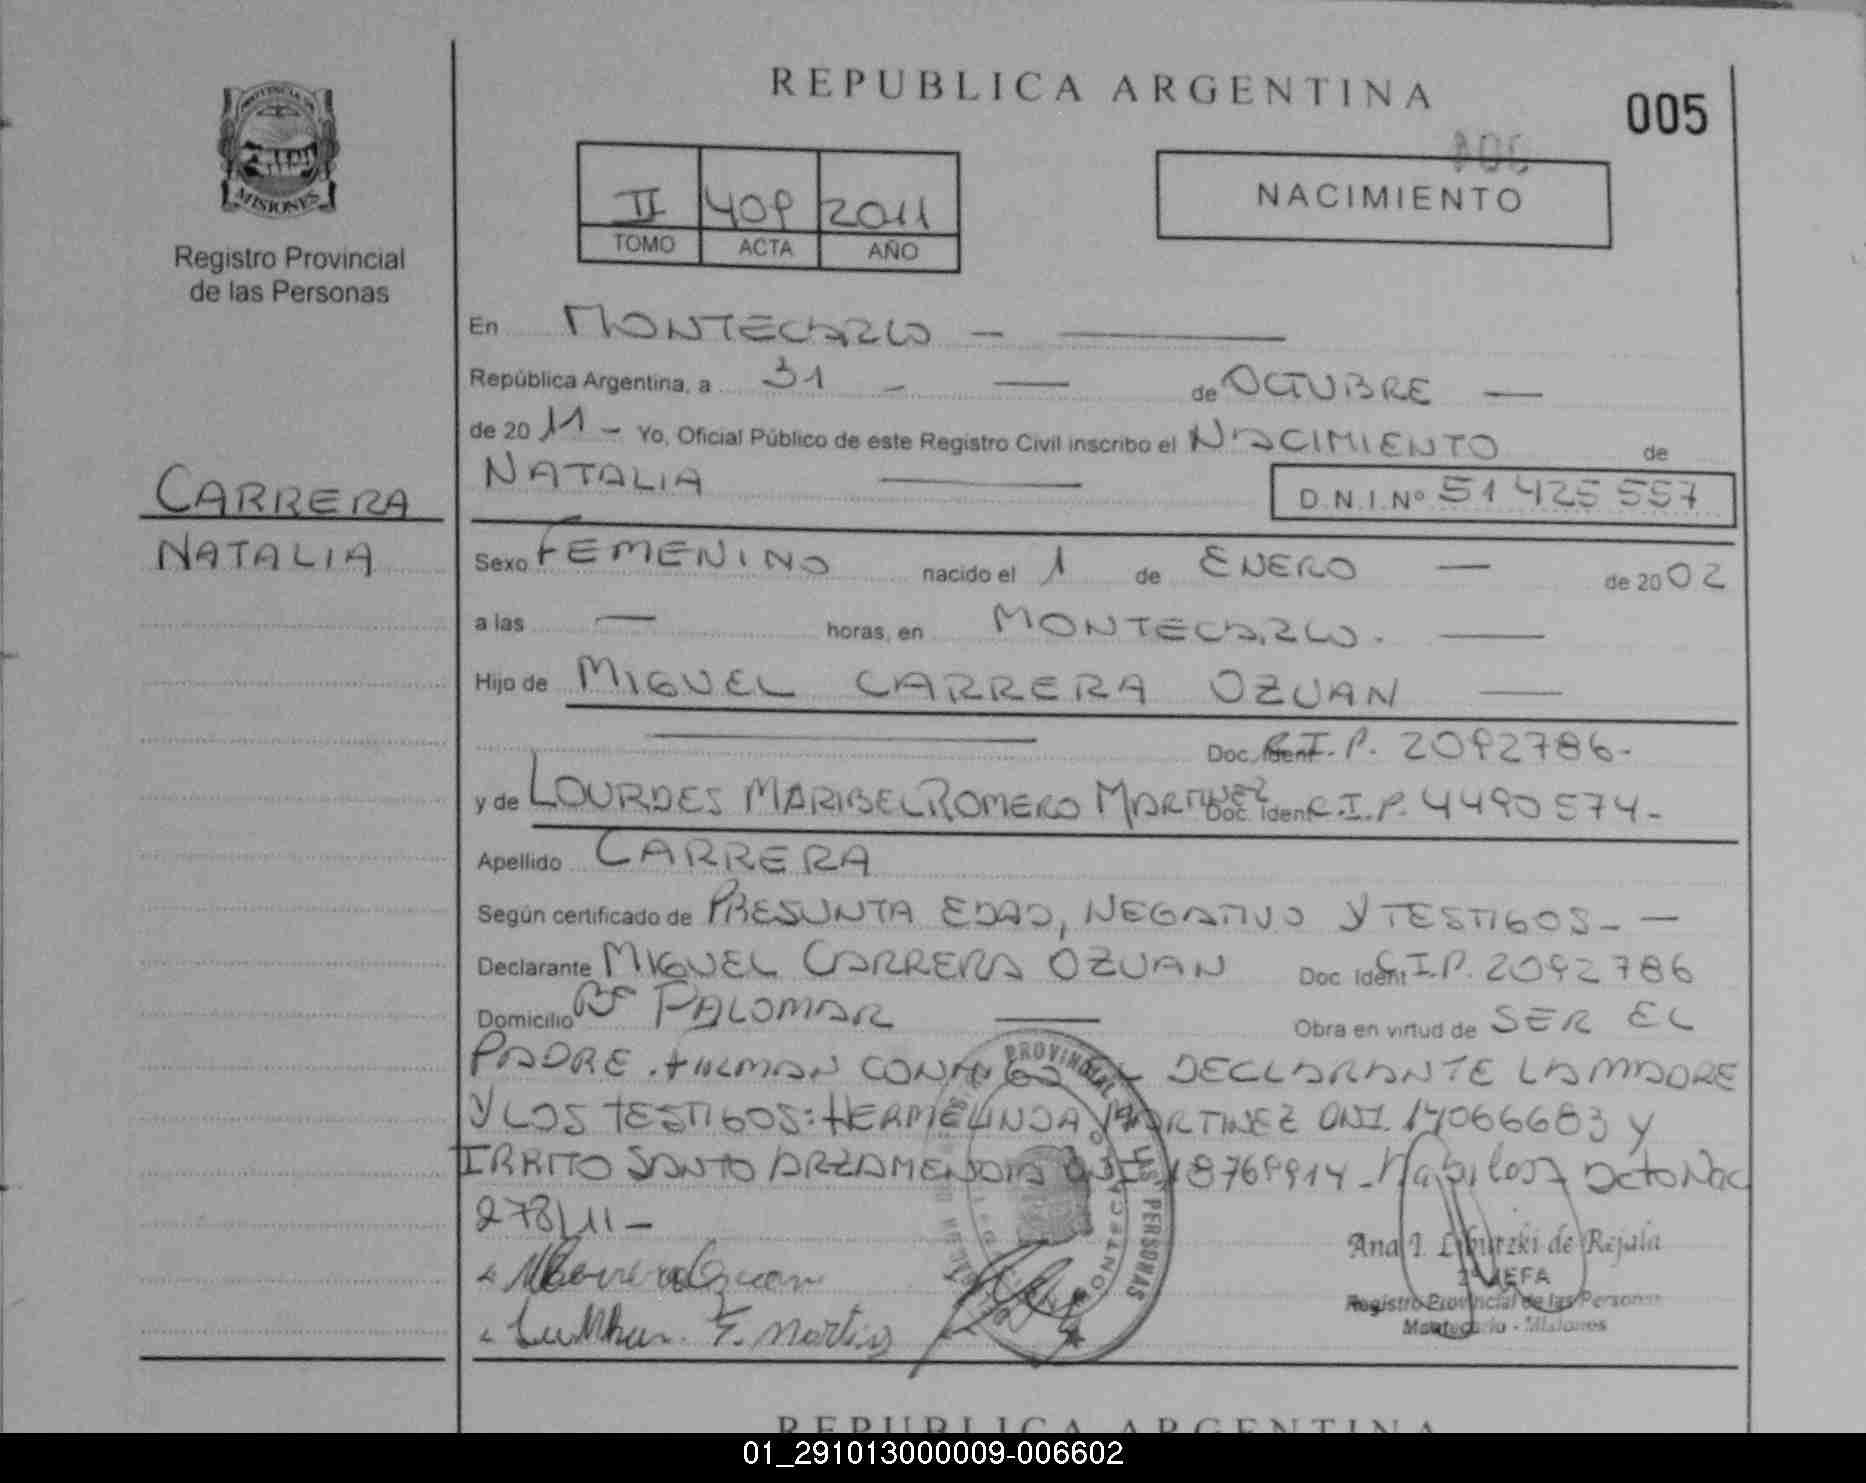 REPUBLICA ARGENTINA
005
PROVINCIA DE
MISIONES
Registro Provincial
de las Personas
II 409 2011
TOMO ACTA AÑO
NACIMIENTO
En MONTECARLO —
República Argentina, a 31 — de OCTUBRE —
de 20 11 - Yo, Oficial Público de este Registro Civil inscribo el NACIMIENTO de
CARRERA
NATALIA
NATALIA — D.N.I.Nº 51 425 557
Sexo FEMENINO nacido el 1 de ENERO — de 20 02
a las — horas, en MONTECARLO. —
Hijo de MIGUEL CARRERA OZUAN —
Doc. Ident. C.I.P. 2092786-
y de LOURDES MARIBEL ROMERO MARTINEZ Doc. Ident. C.I.P. 4490574-
Apellido CARRERA
Según certificado de PRESUNTA EDAD, NEGATIVO Y TESTIGOS- —
Declarante MIGUEL CARRERA OZUAN Doc. Ident C.I.P. 2092786
Domicilio Bº PALOMAR — Obra en virtud de SER EL
PADRE. FIRMAN CONMIGO EL DECLARANTE LA MADRE
Y LOS TESTIGOS: HERMELINDA MARTINEZ DNI. 14066683 Y
IRRITO SANTO ARZAMENDIA DNI 18769914 - Dcto Nac
278/11 -
PROVINCIAL
LAS PERSONAS
Ana I. de Rejala
JEFA
Registro Provincial de las Personas
Montecarlo - Misiones
REPUBLICA ARGENTINA
01_291013000009-006602